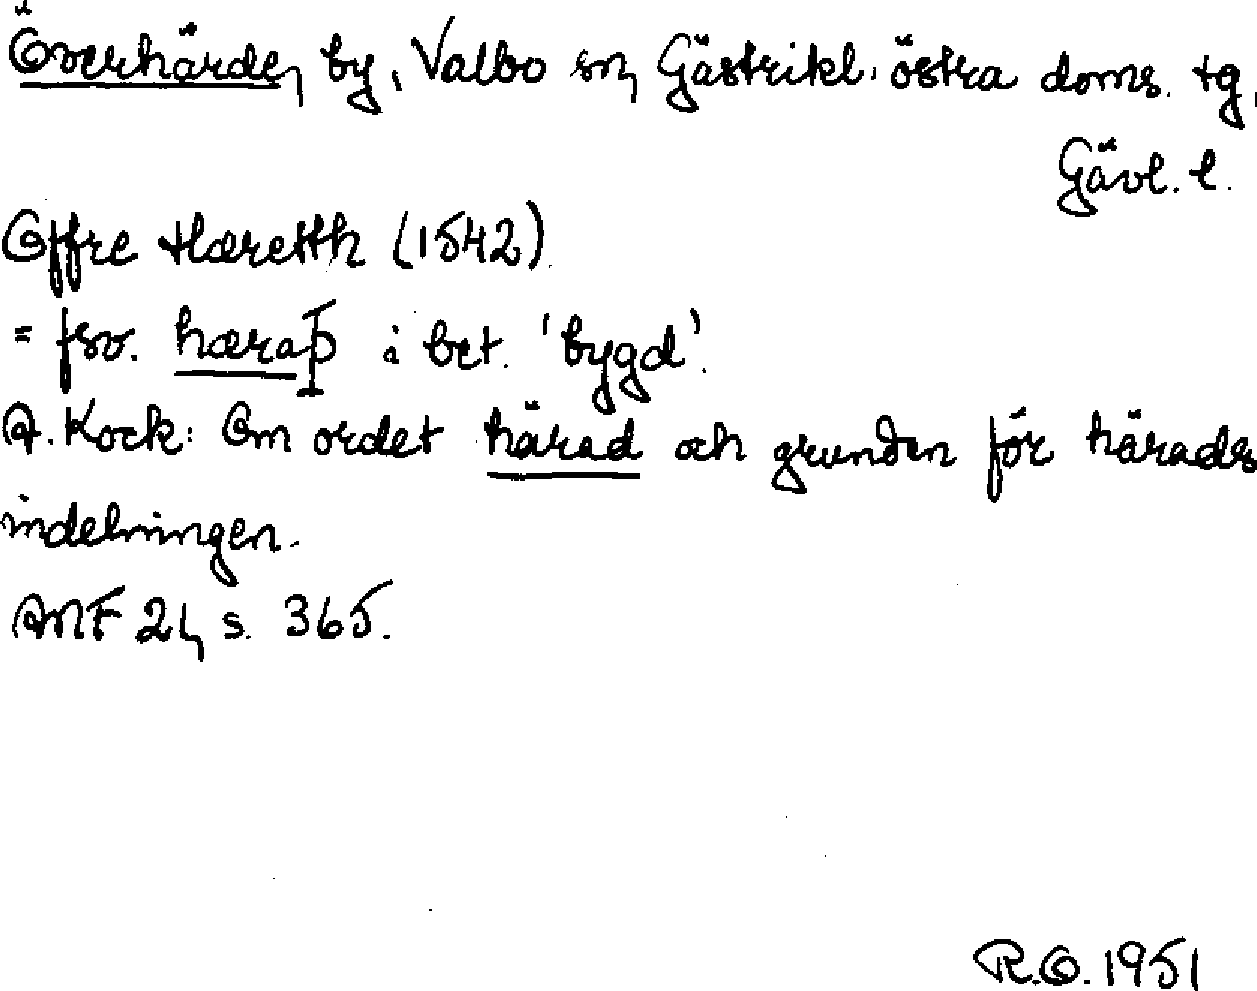 Överhärde, by, Valbo sn, Gästrikl. östra doms. tg,
Gävl. l.
Offre Hæretth (1542).
= fsv. hæraþ i bet. 'bygd'.
A. Kock: Om ordet härad och grunden för härads
indelningen.
ANF 21, s. 365.
R.O. 1951